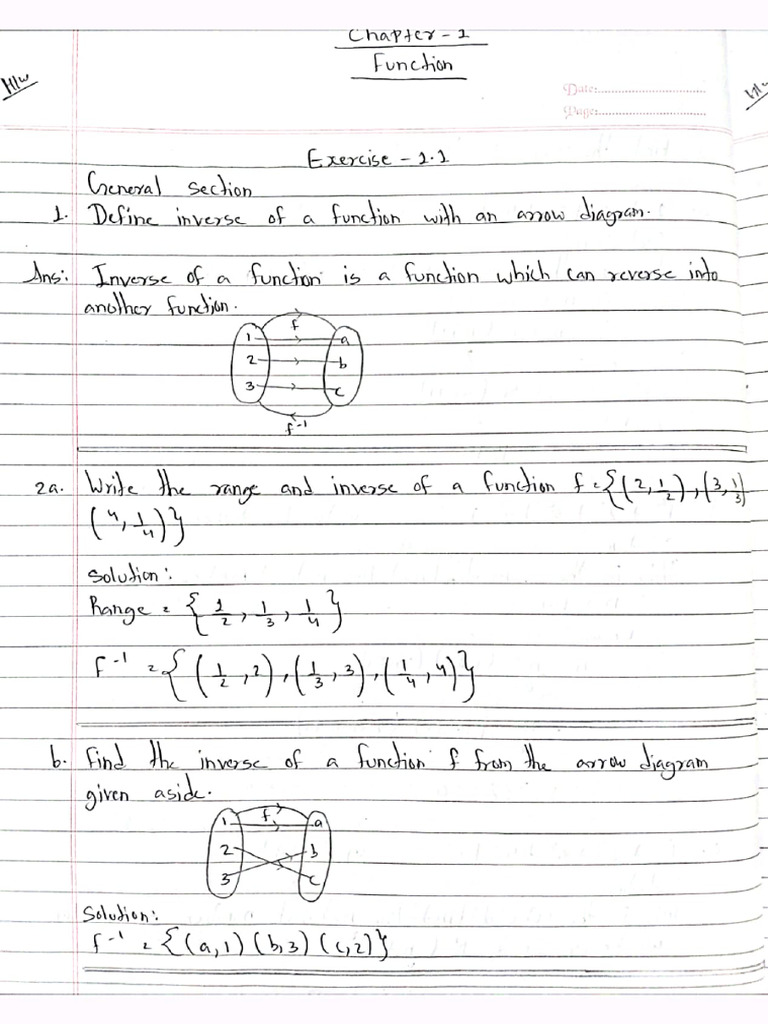 Chapter - 1
Function
H/w
Date:
Page:
Exercise - 1.1
General section
1. Define inverse of a function with an arrow diagram.
Ans: Inverse of a function is a function which can reverse into
another function.
f
1 a
2 b
3 c
f⁻¹
2a. Write the range and inverse of a function f = {(2, 1/2), (3, 1/3)
(4, 1/4)}
Solution:
Range = {1/2, 1/3, 1/4}
f⁻¹ = {(1/2, 2), (1/3, 3), (1/4, 4)}
b. Find the inverse of a function f from the arrow diagram
given aside.
f
1 a
2 b
3 c
Solution:
f⁻¹ = {(a, 1) (b, 3) (c, 2)}